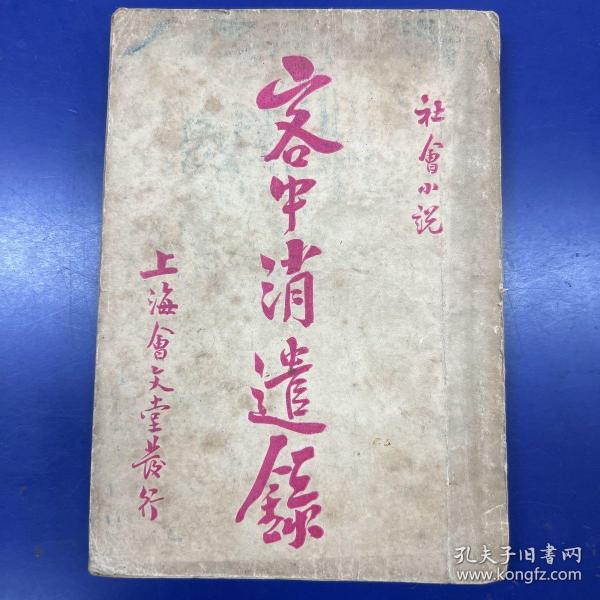 社會小説
客中消遣錄
上海會文堂發行
孔夫子旧書网
www.kongfz.com